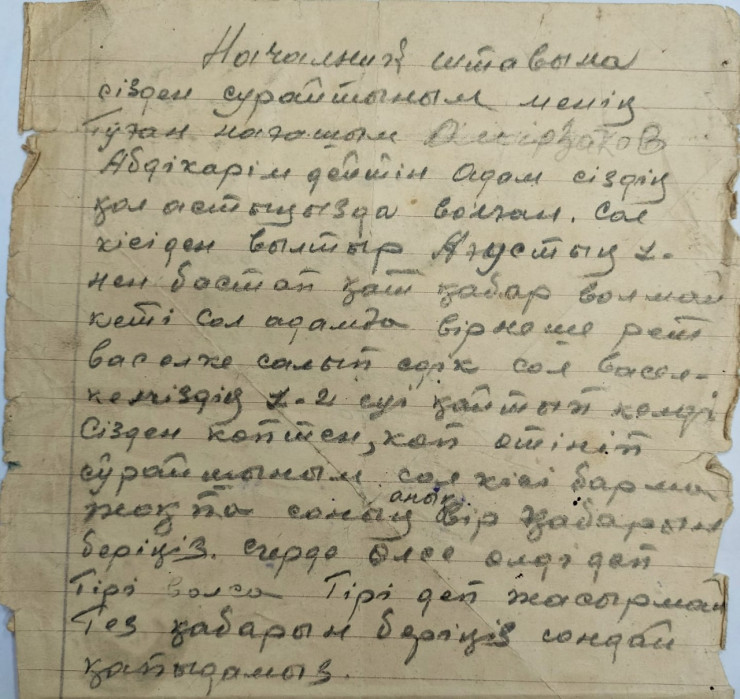 Началниқ штавына
сізден сурайтыным менің
Туған нағашым Омірзақов
Абдікарім дейтін Адам сіздің
қол астыңызда волған. Сол
кісіден вылтыр Ағустың 1-
нен бастап қат қабар волмай
кетті сол адамда вірнеше рет
васелке салып едік сол васел-
кеміздің 1-2 суі қайтып келді
Сізден коптен, коп отініп
сұрайтыным сол кісі барма
жоқ па соның анық вір қабарын
беріңіз. егерде Өлсе олді деп
Тірі волса Тірі деп жасырмай
Тез қабарын беріңіз сондай
қапыдамыз.